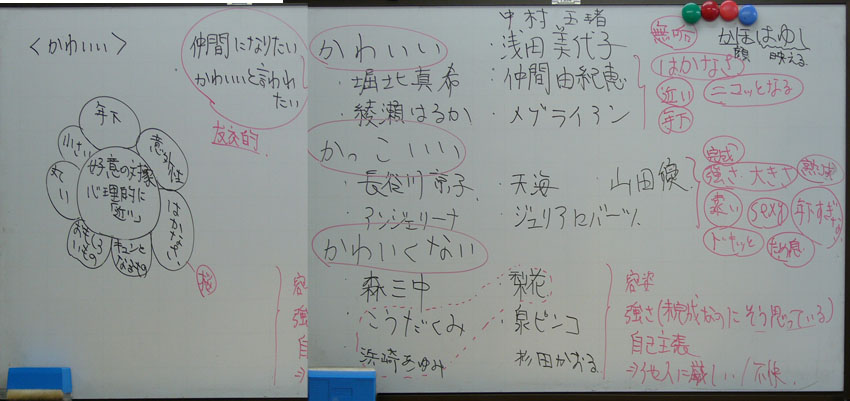 <かわいい>
仲間になりたい
かわいいと言われ
たい
友好的
年下
小さい
意外性
丸い
好意の対象
心理的に
「近い」
はかなさ
キュンと
中村玉緒
かわいい
浅田美代子
・堀北真希
・仲間由紀恵
・綾瀬はるか
・メグライアン
無垢
かほはゆし
顔 映える
はかなさ
近い
ニコッとなる
年下
かっこいい
・長谷川京子
・天海
・山田優
・アンジェリーナ
・ジュリアロバーツ
完成
強さ・大きさ
熟成
遠い
sexy
年下すぎない
ため息
かわいくない
森三中
梨花
・こうだくみ
・泉ピンコ
・浜崎あゆみ
・杉田かおる
容姿
強さ(未完成なのにそう思っている)
自己主張
⇒他人に厳しい/不快
容
強
自
⇒